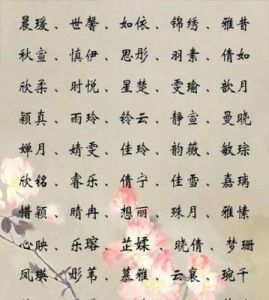 晨瑗、世馨、如依、锦绣、雅昔
秋萱、慎伊、思彤、羽素、倩如
欣柔、时悦、星楚、雯瑜、歆月
颖真、雨玲、铃云、静宣、曼晓
婵月、婧雯、佳玲、韵薇、敏琮
欣铭、睿乐、倩宁、佳雪、嘉瑞
惜颖、晴冉、想丽、珠月、雅愫
心映、乐瑢、芷媃、晓倩、梦珊
凤瑛、彤苇、慕雅、云襄、琬千